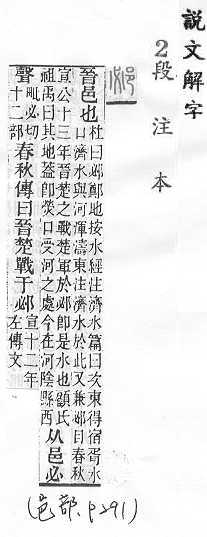 說文解字
2段注本
邲
晉邑也杜曰邲鄭地按水經注濟水篇曰次東得宿胥水
口濟水與河渾濤東注濟水於此又兼邲目春秋
宣公十三年晉楚之戰楚軍於邲卽是水也顧氏
祖禹曰其地葢卽滎口受河之處今在河陰縣西从邑必
聲毗必切十二部春秋傳曰晉楚戰于邲宣十二年左傳文
(邑部.p291)